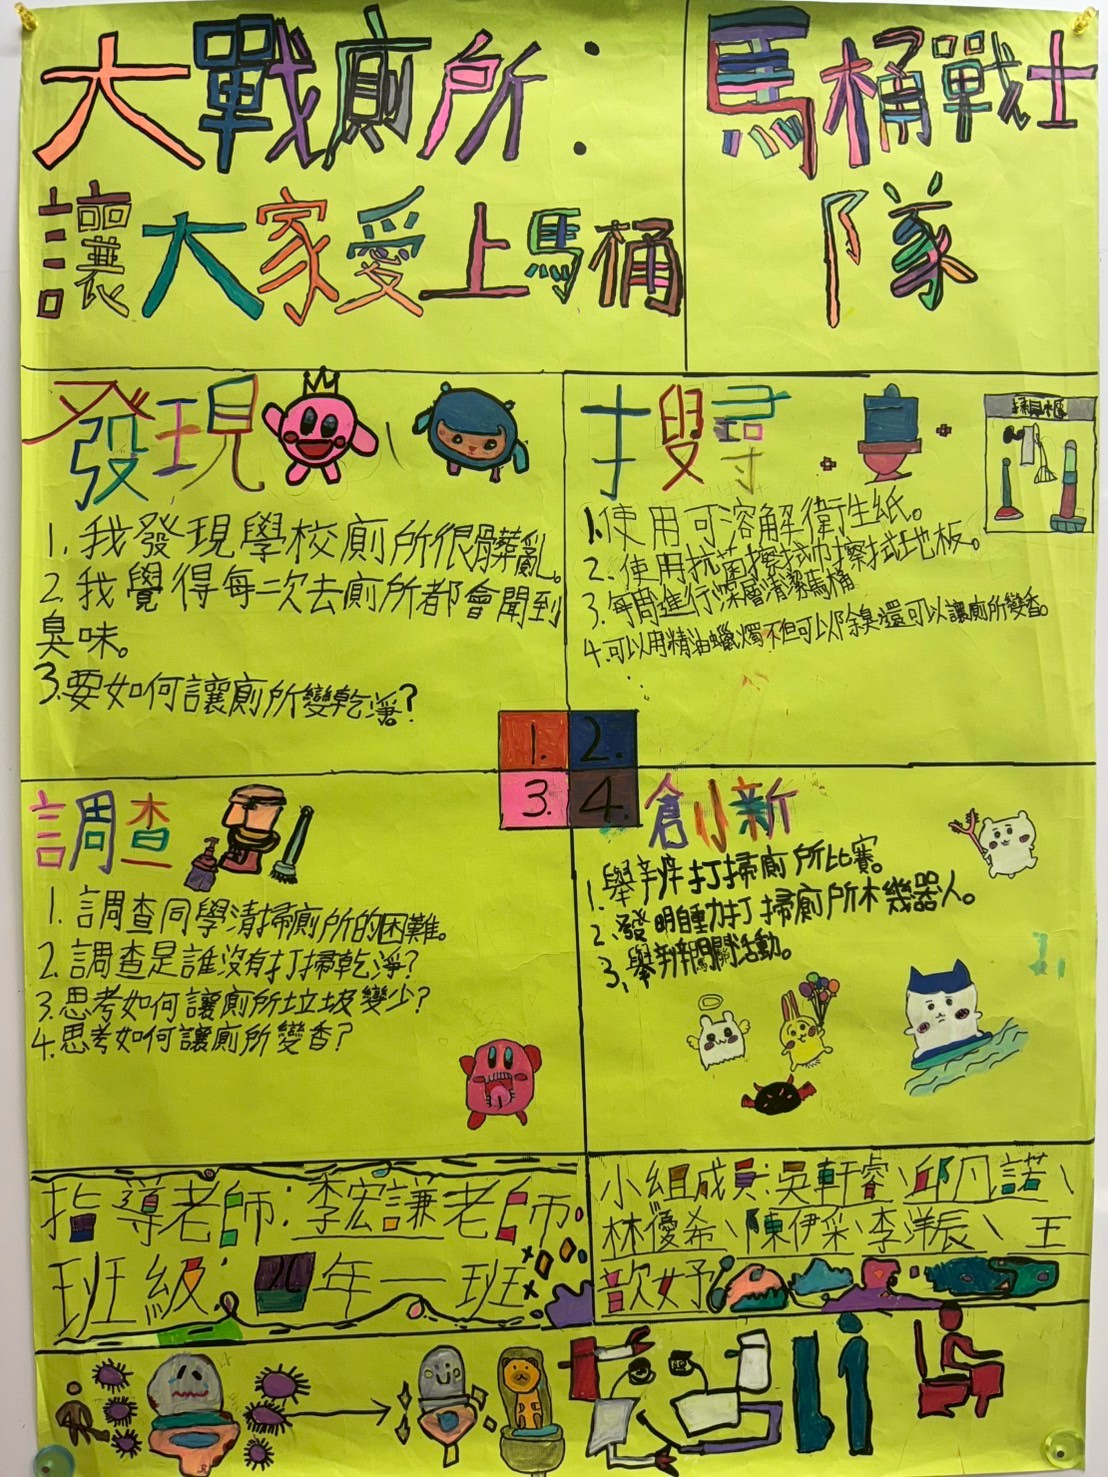 大戰廁所：
讓大家愛上馬桶
馬桶戰士
隊
發現
1. 我發現學校廁所很髒亂。
2. 我覺得每一次去廁所都會聞到
臭味。
3.要如何讓廁所變乾淨？
搜尋
掃具櫃
1.使用可溶解衛生紙。
2.使用抗菌擦拭巾擦拭地板。
3.每周進行深層清潔馬桶
4.可以用精油蠟燭不但可以除臭還可以讓廁所變香。
1. 2.
3. 4.
調查
1. 調查同學清掃廁所的困難。
2. 調查是誰沒有打掃乾淨？
3.思考如何讓廁所垃圾變少？
4.思考如何讓廁所變香？
創新
1.舉辦打掃廁所比賽。
2.發明自動打掃廁所機器人。
3.舉辦闖關活動。
指導老師：李宏謙老師
班級：四年一班
小組成員：吳軒睿、邱凡諾、
林優希、陳伊采、李洋辰、王
歆妤